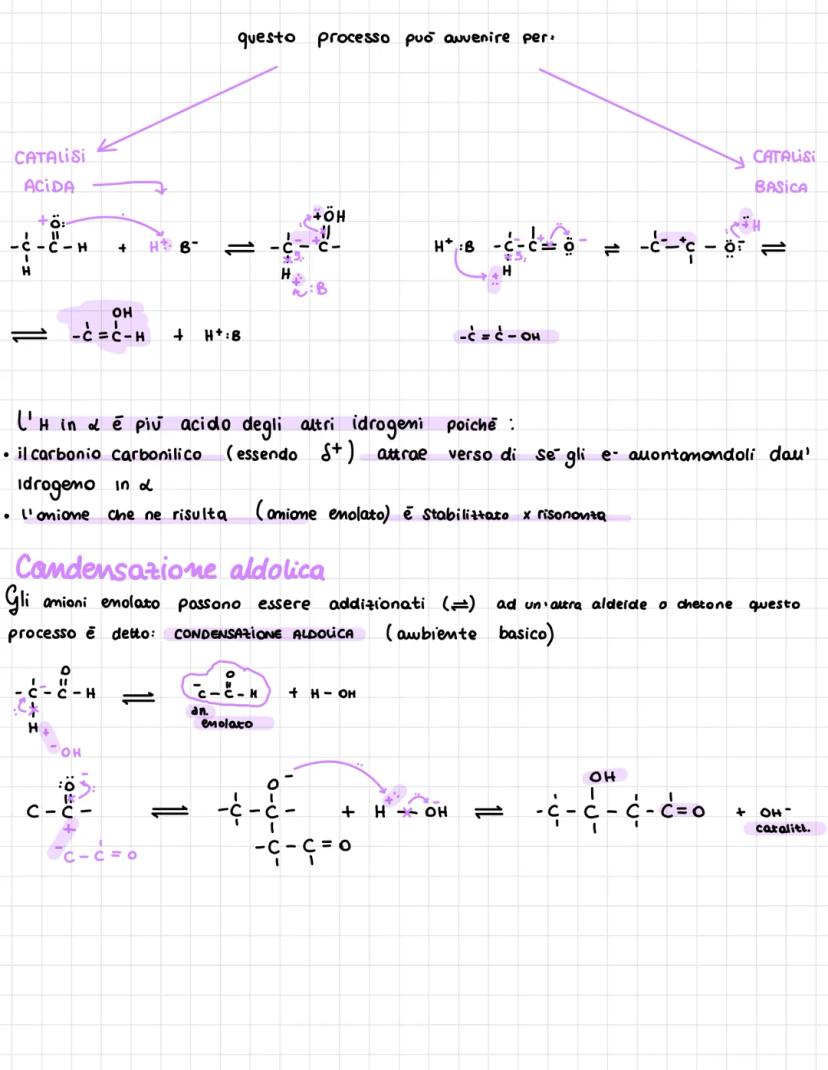 questo processo può avvenire per:
CATALISI
ACIDA
CATALISI
BASICA
+ Ö:
-C-C-H + H+: B- ⇌ -C-C- +ÖH
H
H
+ :B
H+ :B -C-C=Ö - ⇌ -C-+C-Ö:- ⇌ +H
H
⇌ -C=C-H + H+:B
OH
-C=C-OH
L'H in α è più acido degli altri idrogeni poiché :
• il carbonio carbonilico (essendo δ+) attrae verso di sé gli e- allontanandoli dall'
idrogeno in α
• l'anione che ne risulta (anione enolato) è stabilizzato x risonanza
Condensazione aldolica
Gli anioni enolato possono essere addizionati (⇌) ad un'altra aldeide o chetone questo
processo è detto: CONDENSAZIONE ALDOLICA (ambiente basico)
O O
-C-C-H ⇌ -C-C-H + H-OH
an.
enolato
H+
-OH
:Ö - O- OH
C-C- ⇌ -C-C- + H-OH ⇌ -C-C-C-C=O + OH-
catalit.
+
-C-C=O -C-C=O